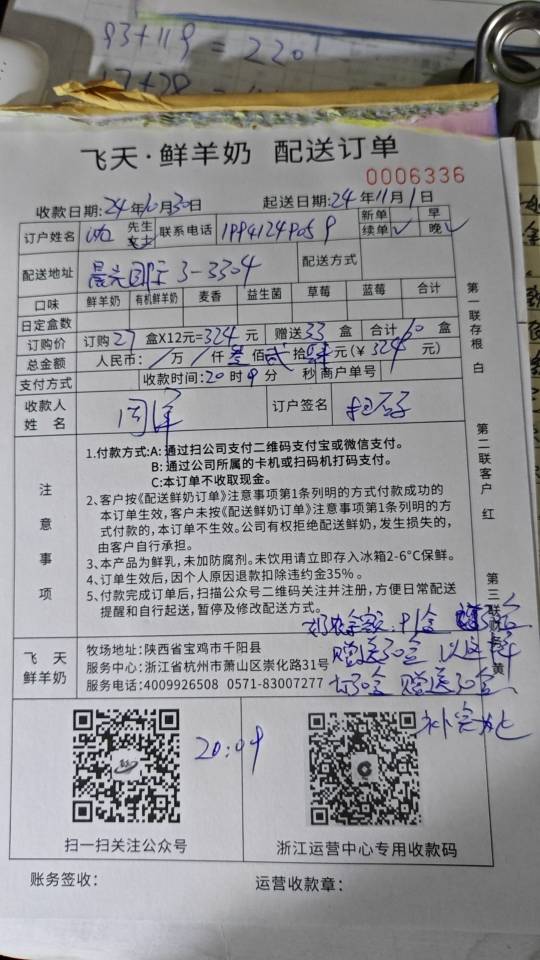 93+119=220
飞天·鲜羊奶 配送订单
0006336
收款日期:24年10月30日 起送日期:24年11月1日
订户姓名 先生 女士 联系电话 新单 早
续单✓ 晚✓
配送地址 3-3304 配送方式
口味 鲜羊奶 有机鲜羊奶 麦香 益生菌 草莓 蓝莓 合计
日定盒数
订购价 订购27盒X12元=324元 赠送33盒 合计60盒
总金额 人民币: /万 /仟叁佰贰拾肆元(¥324元)
支付方式 收款时间:20时9分 秒 商户单号
收款人姓名 订户签名
注意事项
1.付款方式:A:通过扫公司支付二维码支付宝或微信支付。
B:通过公司所属的卡机或扫码机打码支付。
C:本订单不收取现金。
2、客户按《配送鲜奶订单》注意事项第1条列明的方式付款成功的
本订单生效,客户未按《配送鲜奶订单》注意事项第1条列明的方
式付款的,本订单不生效。公司有权拒绝配送鲜奶,发生损失的,
由客户自行承担。
3、本产品为鲜乳,未加防腐剂。未饮用请立即存入冰箱2-6°C保鲜。
4、订单生效后,因个人原因退款扣除违约金35%。
5、付款完成订单后,扫描公众号二维码关注并注册,方便日常配送
提醒和自行起送,暂停及修改配送方式。
赠送30盒 以这
订30盒 赠送30盒
飞天鲜羊奶
牧场地址:陕西省宝鸡市千阳县
服务中心:浙江省杭州市萧山区崇化路31号
服务电话:4009926508 0571-83007277
20:09
扫一扫关注公众号 浙江运营中心专用收款码
账务签收: 运营收款章:
第一联存根 白
第二联客户 红
第三联 黄